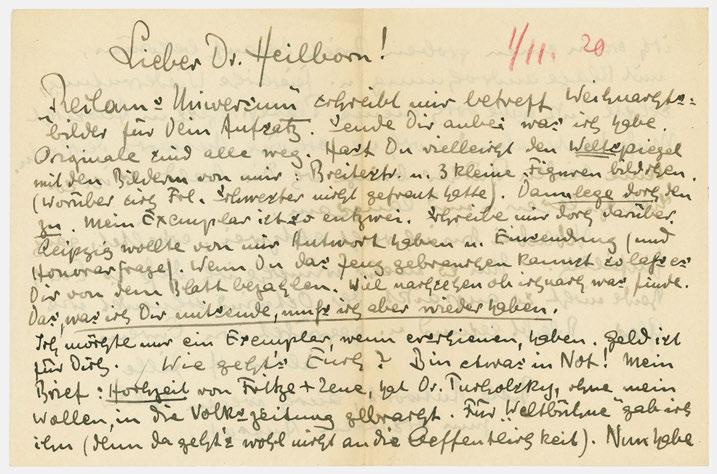 Lieber Dr. Heilborn!
1/11. 20
Reclams Universum schreibt mir betreff Weihnachts-
bilder für Dein Aufsatz. Sende Dir anbei was ich habe.
Originale sind alle weg. Hast Du vielleicht den Weltspiegel
mit den Bildern von mir: Breitestr. u. 3 kleine Figurenbildchen.
(Worüber sich Frl. Schwester nicht gefreut hatte). Dann lege doch den
zu. Mein Exemplar ist so entzwei. Schreibe mir doch darüber.
Leipzig wollte von mir Antwort haben u. Einsendung (und
Honorarfrage). Wenn Du das Zeug gebrauchen kannst so lass es
Dir von dem Blatt bezahlen. Will nachsehen ob ich noch was finde.
Das, was ich Dir mitsende, muss ich aber wieder haben.
Ich möchte nur ein Exemplar, wenn erschienen, haben. Geld ist
für Dich. Wie geht's Euch? Bin etwas in Not! Mein
Brief: Hochzeit von Fritze + Lene, hat Dr. Tucholzky, ohne mein
Wollen, in die Volkszeitung gebracht. Für "Weltbühne" gab ich
ihm (denn da geht's wohl nicht an die Oeffentlichkeit). Nun habe